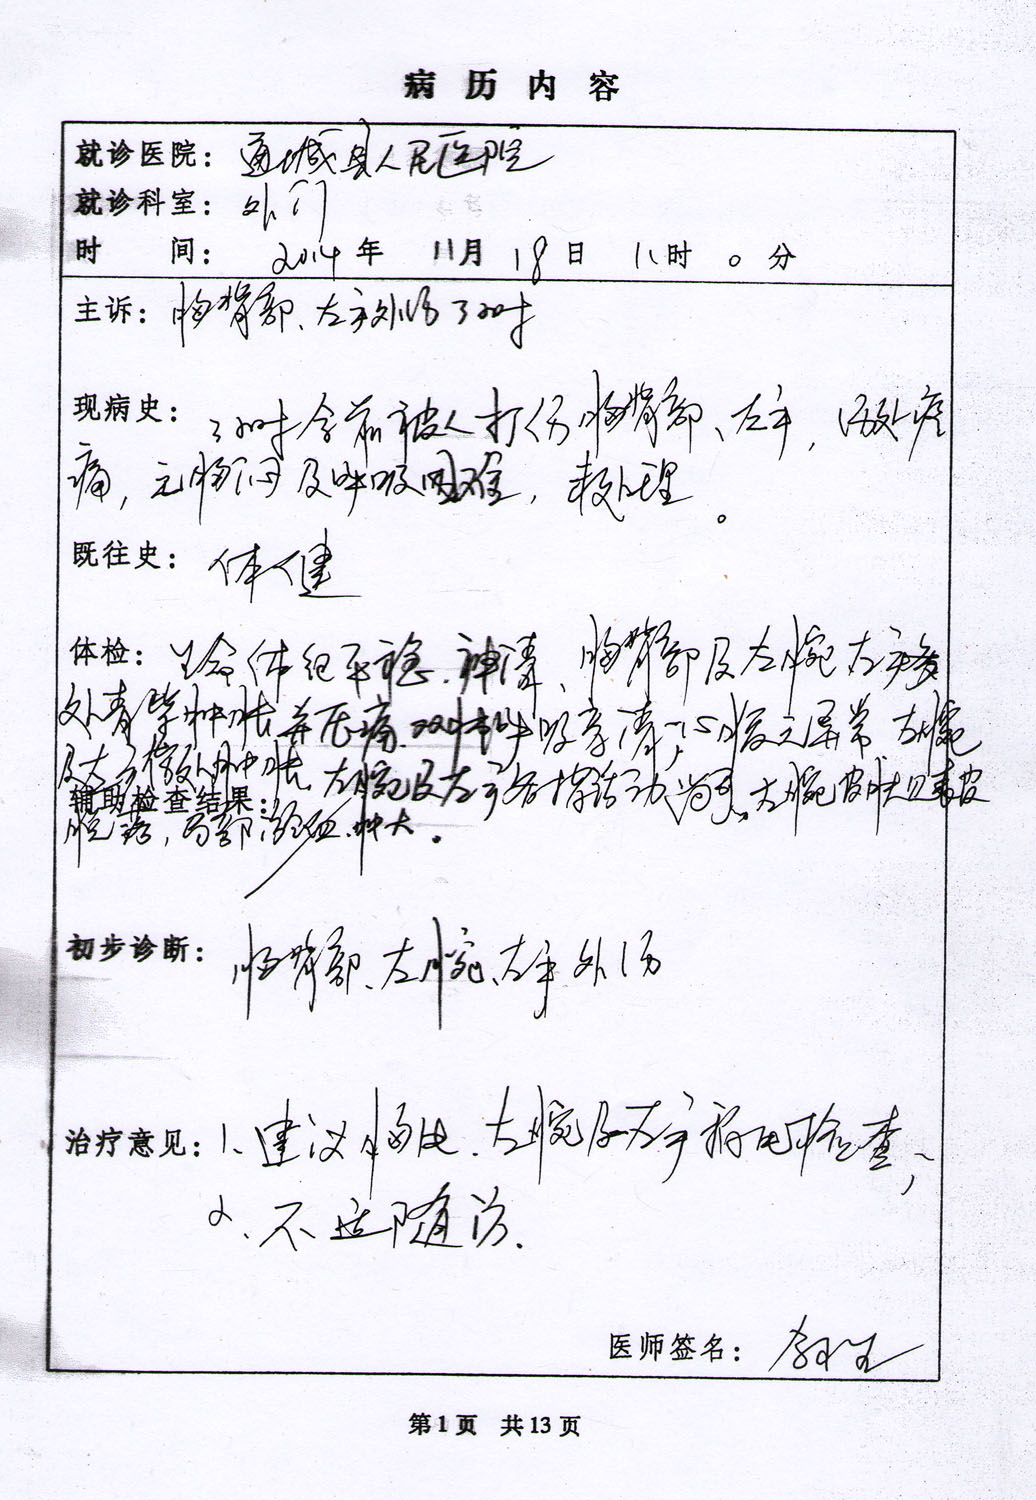 病历内容
就诊医院：通城县人民医院
就诊科室：外门
时 间：2014年 11月 18日 11时 0分
主诉：胸背部、左手外伤3小时
现病史：3小时余前被人打伤胸背部、左手，伤处疼
痛，无胸闷及呼吸困难，未处理。
既往史：体健
体检：生命体征平稳.神清、胸背部及左腕左手多
处青紫肿胀并压痛.双肺呼吸音清，心腹无异常 左腕
及左手 肿胀.左腕及左手各指活动尚可。左腕皮肤见表皮
辅助检查结果：
脱落，局部 血.肿大。
初步诊断：胸背部、左腕、左手外伤
治疗意见：1、建议胸片.左腕及左手 片检查；
2、不适随访.
医师签名：
第1页 共13页